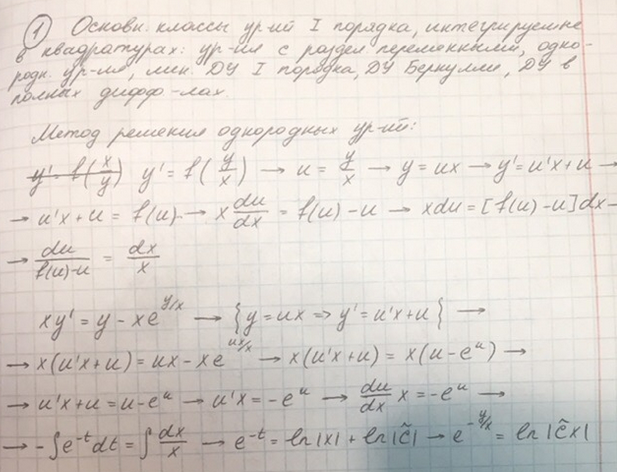 ① Основн. классы ур-ий I порядка, интегрируемые
в квадратурах: ур-ие с раздел переменными, одно-
родн. ур-ие, лин. ДУ I порядка, ДУ Бернулли, ДУ в
полных дифф-лах.
Метод решения однородных ур-ий:
y' = f(x/y) y' = f(y/x) → u = y/x → y = ux → y' = u'x+u →
→ u'x+u = f(u) → x du/dx = f(u) - u → xdu = [f(u)-u]dx →
→ du/(f(u)-u) = dx/x
xy' = y - xe^(y/x) → {y = ux => y' = u'x+u} →
→ x(u'x+u) = ux - xe^(ux/x) → x(u'x+u) = x(u-e^u) →
→ u'x+u = u-e^u → u'x = -e^u → du/dx x = -e^u →
→ -∫e^(-t)dt = ∫dx/x → e^(-t) = ln|x| + ln|c̃| → e^(-y/x) = ln|c̃x|